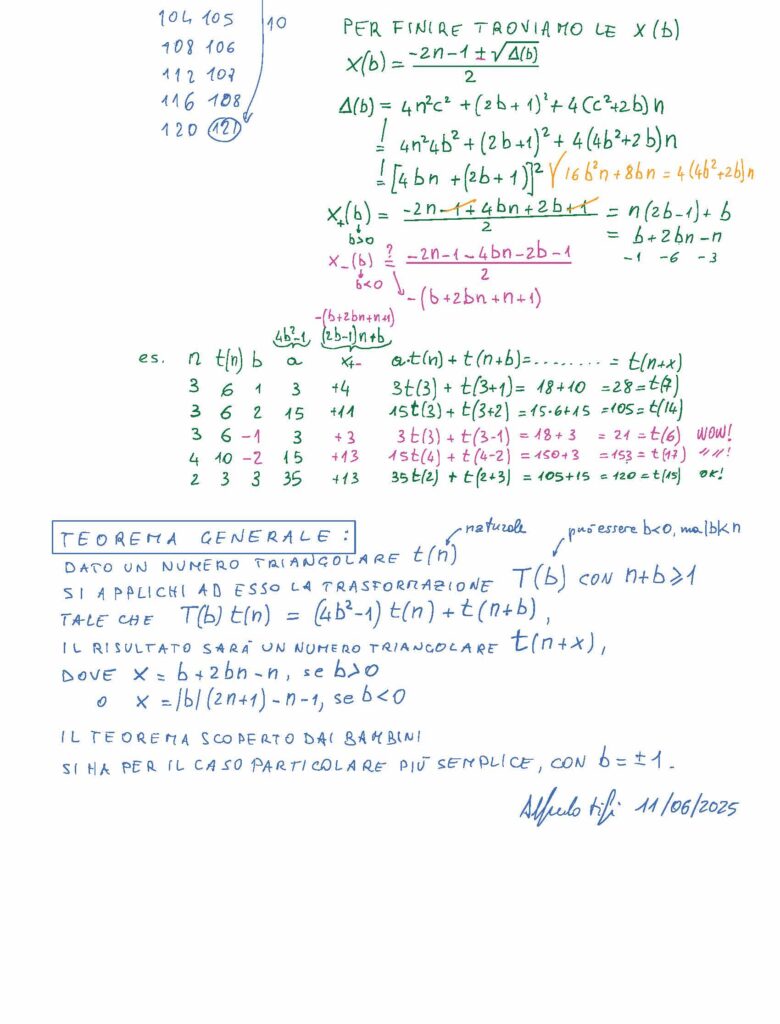 104 105
10
108 106
112 107
116 108
120 121
PER FINIRE TROVIAMO LE X(b)
X(b) = (-2n-1 ± √Δ(b))/2
Δ(b) = 4n²c² + (2b+1)² + 4(c²+2b)n
= 4n²4b² + (2b+1)² + 4(4b²+2b)n
= [4bn + (2b+1)]² √16b²n+8bn = 4(4b²+2b)n
X₊(b) = (-2n-1+4bn+2b+1)/2 = n(2b-1)+b
b>0
= b+2bn-n
-1 -6 -3
X₋(b) ?= (-2n-1-4bn-2b-1)/2
b<0
-(b+2bn+n+1)
-(b+2bn+n+1)
4b²-1 (2b-1)n+b
es. n t(n) b a x± a·t(n) + t(n+b) = ........ = t(n+x)
3 6 1 3 +4 3t(3) + t(3+1) = 18+10 = 28 = t(7)
3 6 2 15 +11 15t(3) + t(3+2) = 15·6+15 = 105 = t(14)
3 6 -1 3 +3 3t(3) + t(3-1) = 18+3 = 21 = t(6) WOW!
4 10 -2 15 +13 15t(4) + t(4-2) = 150+3 = 153 = t(17) "!
2 3 3 35 +13 35t(2) + t(2+3) = 105+15 = 120 = t(15) OK!
TEOREMA GENERALE:
naturale
può essere b<0, ma |b|<n
DATO UN NUMERO TRIANGOLARE t(n)
SI APPLICHI AD ESSO LA TRASFORMAZIONE T(b) CON n+b⩾1
TALE CHE T(b) t(n) = (4b²-1) t(n) + t(n+b),
IL RISULTATO SARÀ UN NUMERO TRIANGOLARE t(n+x),
DOVE X = b+2bn-n, se b>0
O X = |b|(2n+1)-n-1, se b<0
IL TEOREMA SCOPERTO DAI BAMBINI
SI HA PER IL CASO PARTICOLARE PIÙ SEMPLICE, CON b = ±1.
Alfredo Tifi 11/06/2025